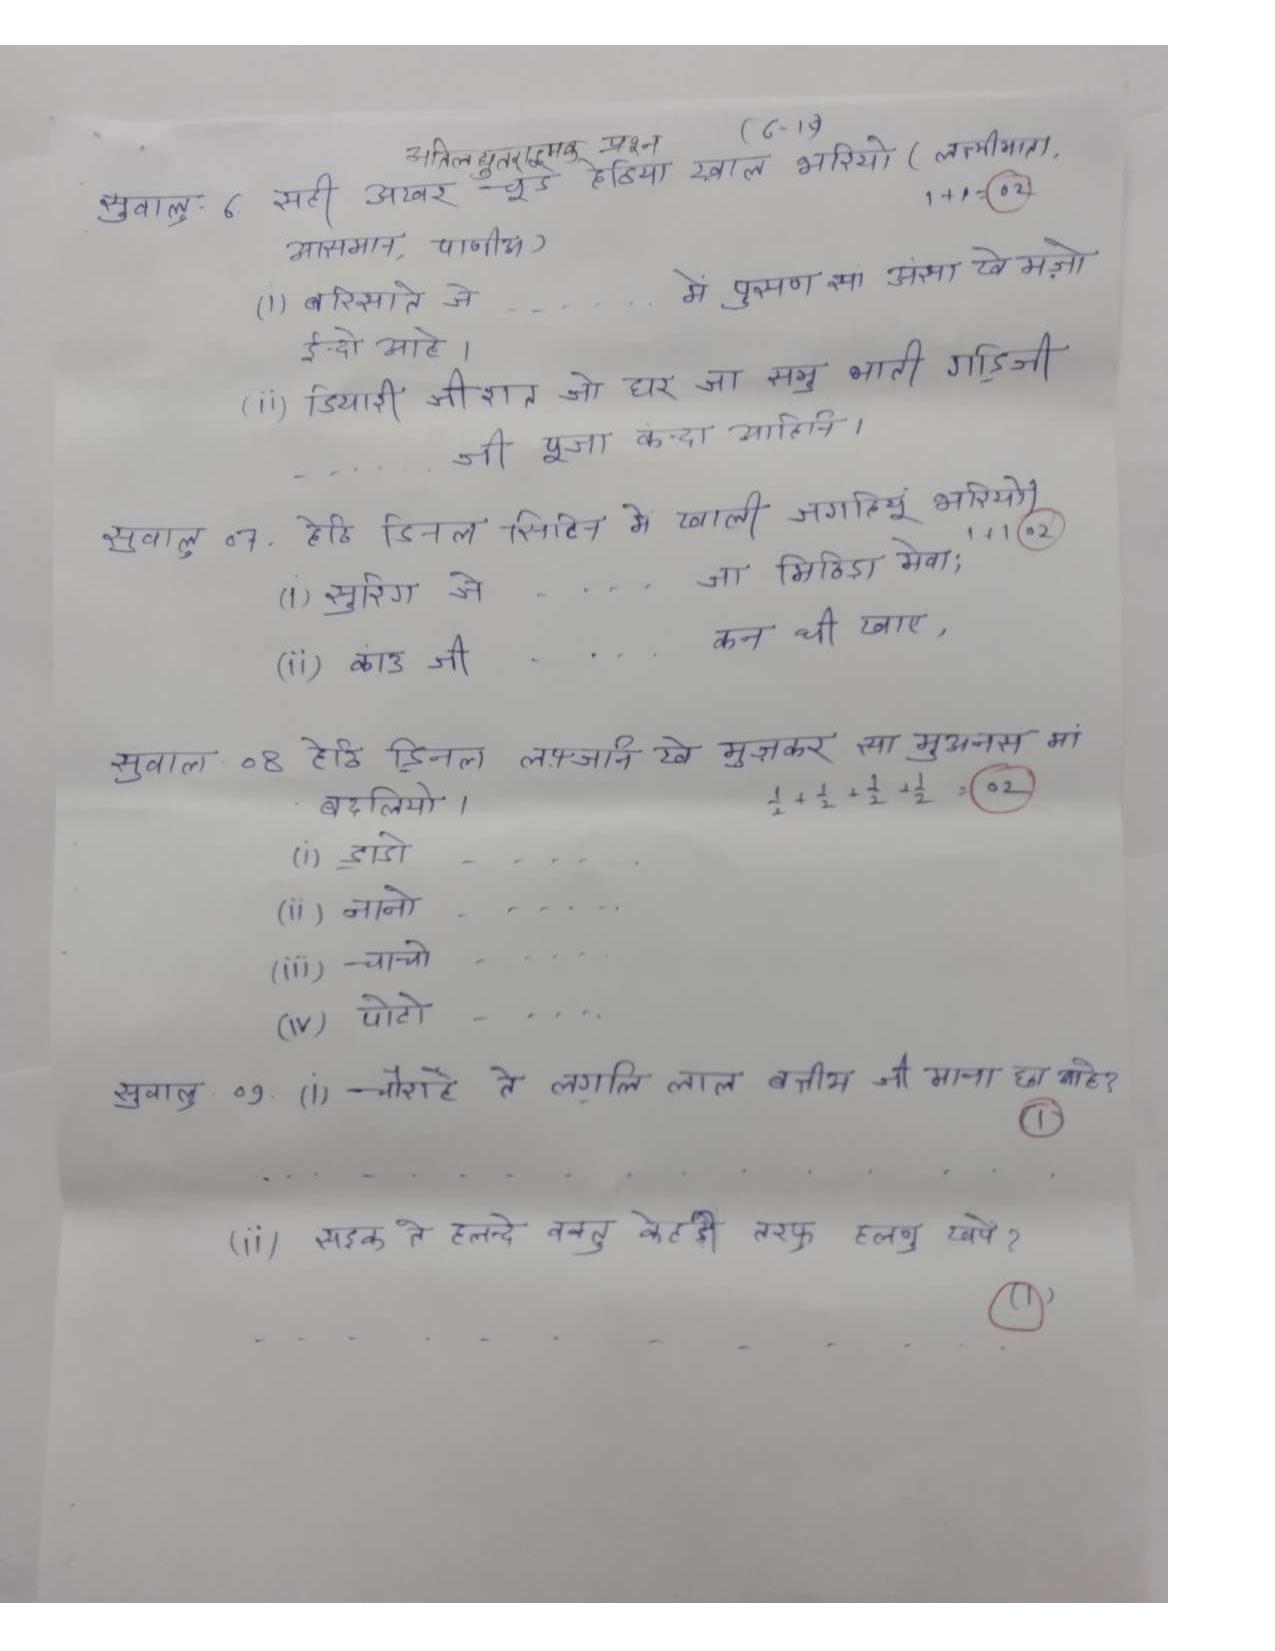 अतिलघुतरात्मक प्रश्न (6-19)
सुवालु- 6. सही अखर चूंडे हेठियां ख़ाल भरियो ( लक्ष्मीमाता,
1+1=02
आसमान, पाणीअ)
(i) बरिसाति जे - - - - - - में पुसण सां असां खे मज़ो
ईन्दो आहे।
(ii) डियारी जी रात जो घर जा सभु भाती गडिजी
- - - - - - जी पूजा कन्दा आहिनि।
सुवालु 07. हेठि डिनल सिटिन में खाली जगहियूं भरियो।
1+1 02
(i) सुरिग जे - . . . जा मिठिड़ा मेवा;
(ii) कांउ जी - . . . कन थी खाए,
सुवाल 08 हेठि ड॒िनल लफ़्ज़नि खे मुज़कर मा मुअनस मां
बदलियो। ½ + ½ + ½ + ½ = 02
(i) ड॒ाडो - - - - - .
(ii) नानो - - - - - .
(iii) चाचो - - - - -
(iv) पोटो - . . . .
सुवालु 09. (i) चौराहे ते लग॒लि लाल बत्तीअ जी माना छा आहे?
1
. . . - - - - - . . . . . . .
(ii) सड़क ते हलन्दे वक्तु केहड़ी तरफु हलणु खपे?
(1)
- - - - - - - - - . . .